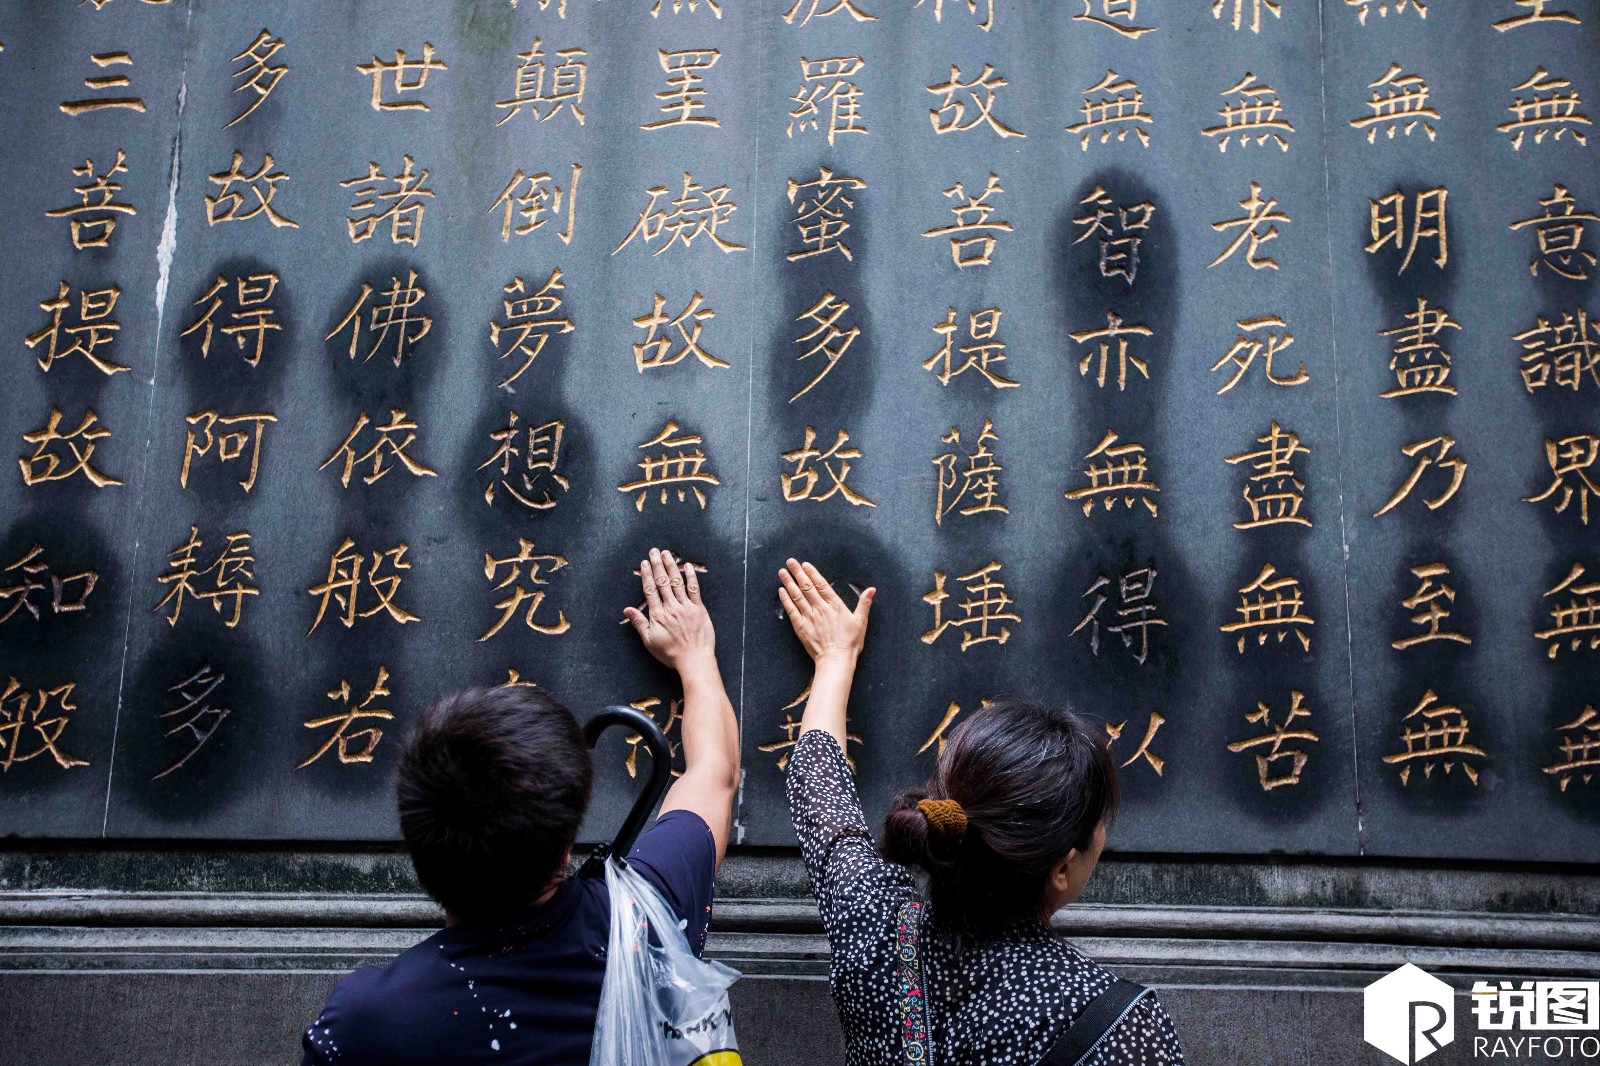 至無意識界無無
無無明盡乃至無
亦無老死盡無苦
道無智亦無得以
得故菩提薩埵依
波羅蜜多故無
無罣礙故無恐
顛倒夢想究
世諸佛依般若
多故得阿耨多
三菩提故知般
THANK
锐图
RAYFOTO